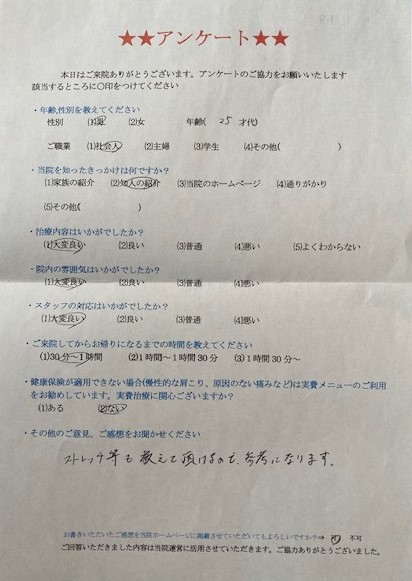 ★★アンケート★★
本日はご来院ありがとうございます。アンケートのご協力をお願いいたします
該当するところに〇印をつけてください
・年齢,性別を教えてください
性別 (1)男 (2)女 年齢( 25 才代)
ご職業 (1)社会人 (2)主婦 (3)学生 (4)その他( )
・当院を知ったきっかけは何ですか?
(1)家族の紹介 (2)知人の紹介 (3)当院のホームページ (4)通りがかり
(5)その他( )
・治療内容はいかがでしたか?
(1)大変良い (2)良い (3)普通 (4)悪い (5)よくわからない
・院内の雰囲気はいかがでしたか?
(1)大変良い (2)良い (3)普通 (4)悪い
・スタッフの対応はいかがでしたか?
(1)大変良い (2)良い (3)普通 (4)悪い
・ご来院してからお帰りになるまでの時間を教えてください
(1)30分~1時間 (2)1時間~1時間30分 (3)1時間30分~
・健康保険が適用できない場合(慢性的な肩こり、原因のない痛みなど)は実費メニューのご利用
をお勧めしています。実費治療に関心ございますか?
(1)ある (2)ない
・その他のご意見、ご感想をお聞かせください
ストレッチ等も教えて頂けるので、参考になります。
お書きいただいたご感想を当院ホームページに掲載させていただいてもよろしいですか?⇒ 可 不可
ご回答いただきました内容は当院運営に活用させていただきます。ご協力ありがとうございました。